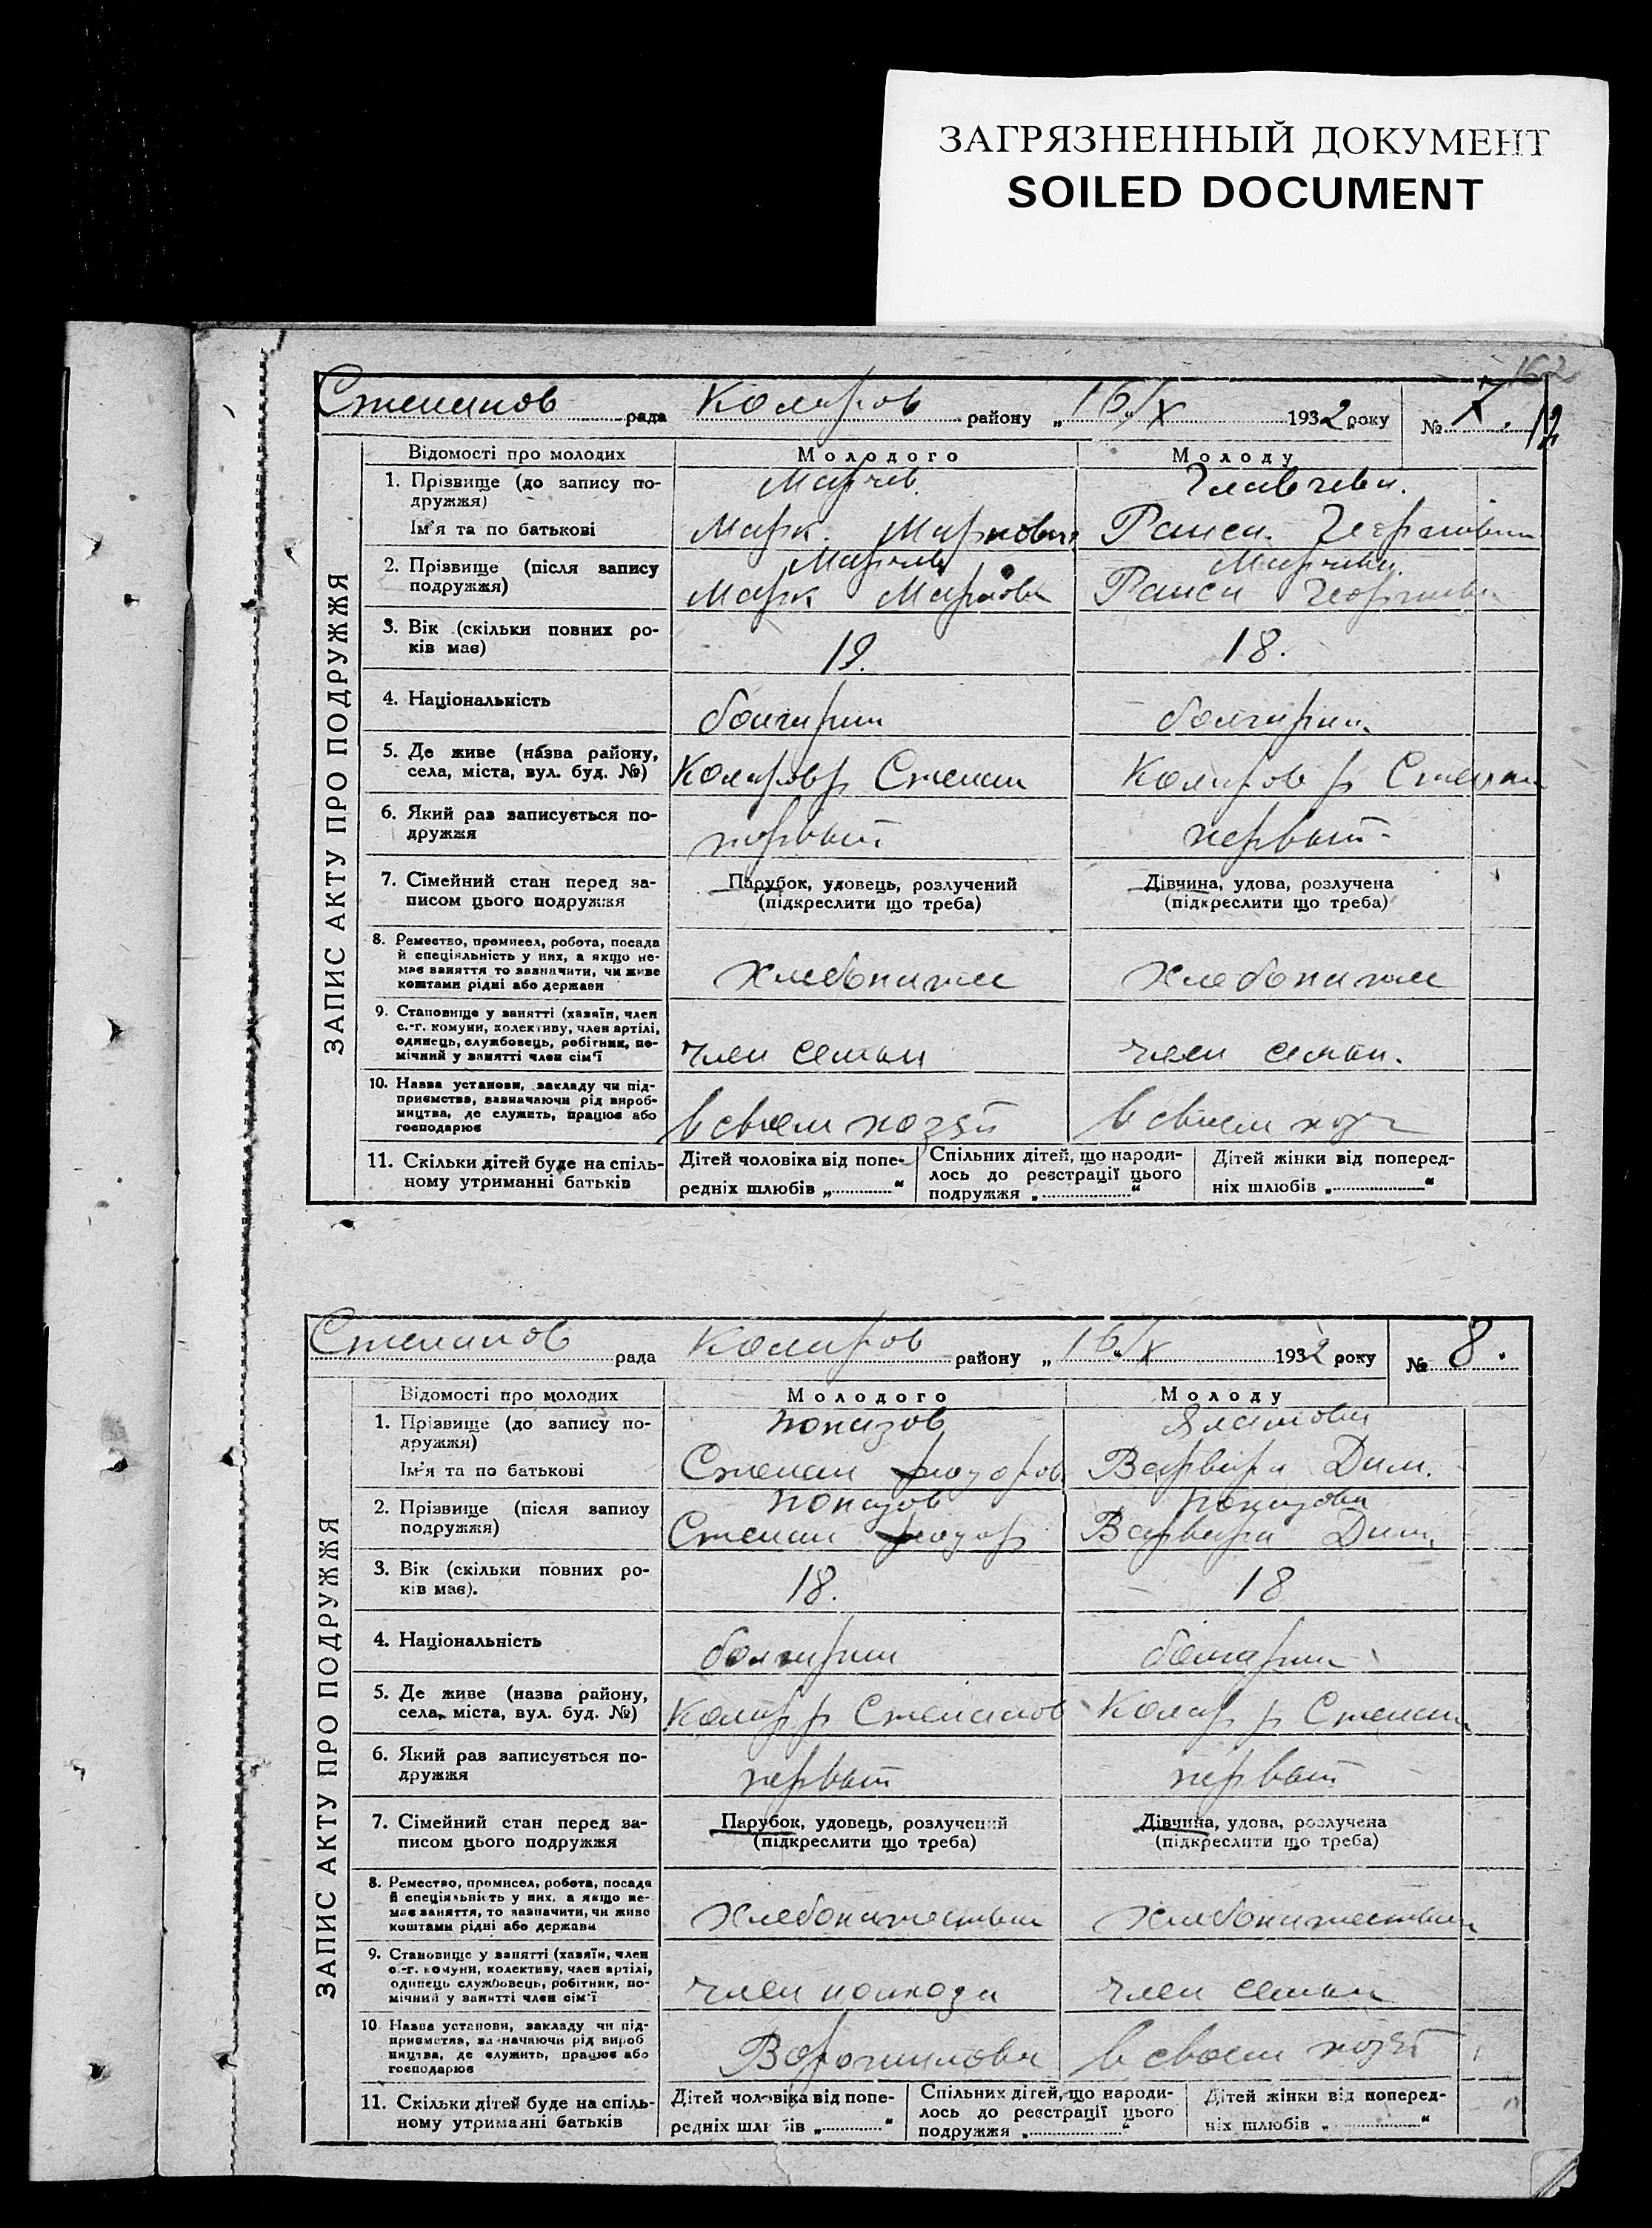 ЗАГРЯЗНЕННЫЙ ДОКУМЕНТ
SOILED DOCUMENT
162
Степанов рада Коларов району „16/X 1932 року № 7. 12
ЗАПИС АКТУ ПРО ПОДРУЖЖЯ
Відомості про молодих Молодого Молоду
1. Прізвище (до запису по-
дружжя)
Марчев. Главчева.
Ім'я та по батькові Марк. Маркович Раиса.
2. Прізвище (після запису
подружжя)
Марчев Марчева.
Марк Маркович Раиса
3. Вік (скільки повних ро-
ків має)
19. 18.
4. Національність болгарин болгарин.
5. Де живе (назва району,
села, міста, вул. буд. №)
Коларов р Степан Коларов р Степан
6. Який раз записується по-
дружжя
первый первый
7. Сімейний стан перед за-
писом цього подружжя
Парубок, удовець, розлучений
(підкреслити що треба)
Дівчина, удова, розлучена
(підкреслити що треба)
8. Ремество, промисел, робота, посада
й спеціяльність у них, а якщо не-
має заняття то зазначити, чи живе
коштами рідні або держави
хлебопаше хлебопаше
9. Становище у занятті (хазяїн, член
с.-г. комуни, колективу, член артілі,
одинець, службовець, робітник, по-
мічний у занятті член сім'ї
член семьи член семьи.
10. Назва установи, закладу чи під-
приємства, зазначаючи рід вироб-
ництва, де служить, працює або
господарює
в своем хозяй в своем хоз
11. Скільки дітей буде на спіль-
ному утриманні батьків
Дітей чоловіка від попе-
редніх шлюбів „ “
Спільних дітей, що народи-
лось до реєстрації цього
подружжя „ “
Дітей жінки від поперед-
ніх шлюбів „ “
Степанов рада Коларов району „16/X 1932 року № 8.
ЗАПИС АКТУ ПРО ПОДРУЖЖЯ
Відомості про молодих Молодого Молоду
1. Прізвище (до запису по-
дружжя)
Попазов
Ім'я та по батькові Степан Федоров Варвара Дим.
2. Прізвище (після запису
подружжя)
Попазов Попазова
Степан Федор Варвара Дим.
3. Вік (скільки повних ро-
ків має).
18. 18
4. Національність болгарин болгарин
5. Де живе (назва району,
села, міста, вул. буд. №)
Колар р Степанов Колар р Степан
6. Який раз записується по-
дружжя
первый первый
7. Сімейний стан перед за-
писом цього подружжя
Парубок, удовець, розлучений
(підкреслити що треба)
Дівчина, удова, розлучена
(підкреслити що треба)
8. Ремество, промисел, робота, посада
й спеціяльність у них, а якщо не-
має заняття, то зазначити, чи живе
коштами рідні або держави
хлебопашеством хлебопашеством
9. Становище у занятті (хазяїн, член
с.-г. комуни, колективу, член артілі,
одинець службовець, робітник, по-
мічний у занятті член сім'ї
член колхоза член семьи
10 Назва установи, закладу чи під-
приємства, зазначаючи рід вироб
ництва, де служить, працює або
господарює
Ворошилова в своем хозяй
11. Скільки дітей буде на спіль-
ному утриманні батьків
Дітей чоловіка від попе-
редніх шлюбів „ “
Спільних дітей, що народи-
лось до реєстрації цього
подружжя „ “
Дітей жінки від поперед-
ніх шлюбів „ “